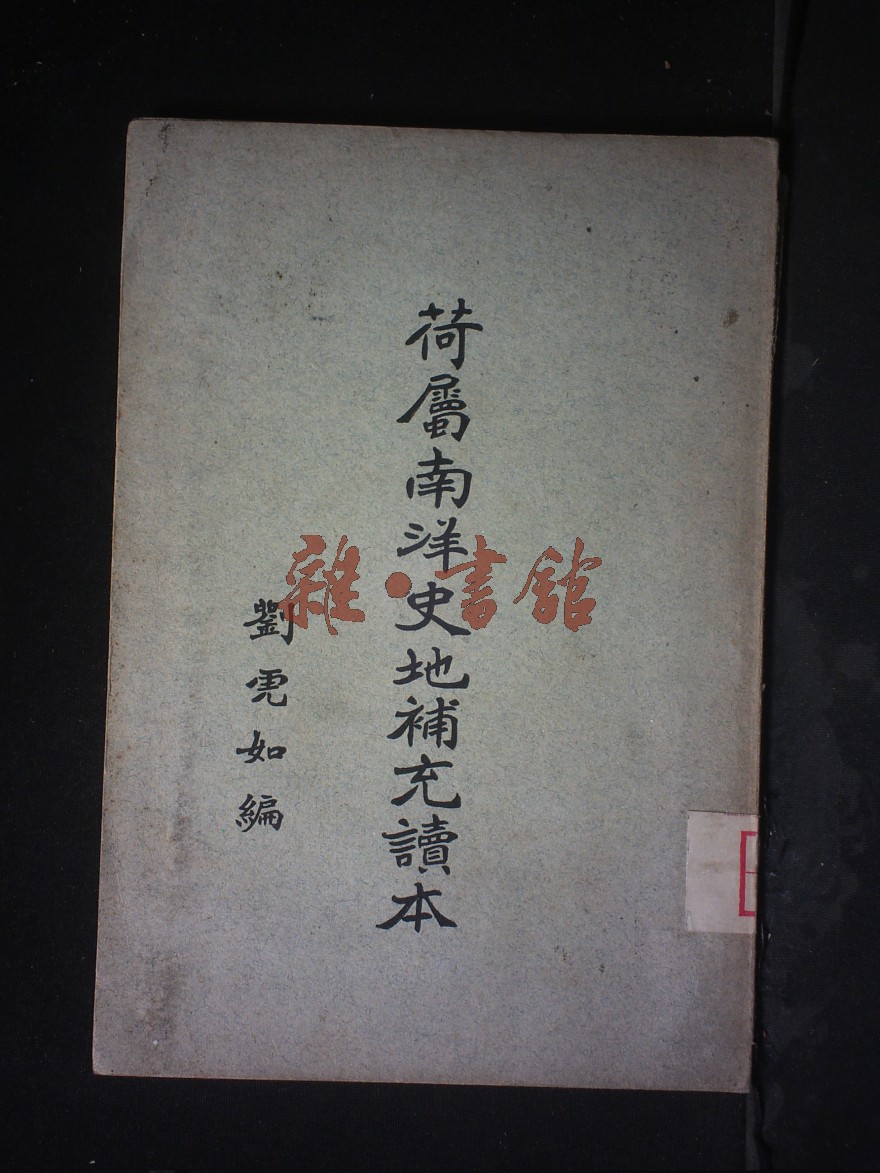 荷屬南洋史地補充讀本
劉虎如編
雜·書館